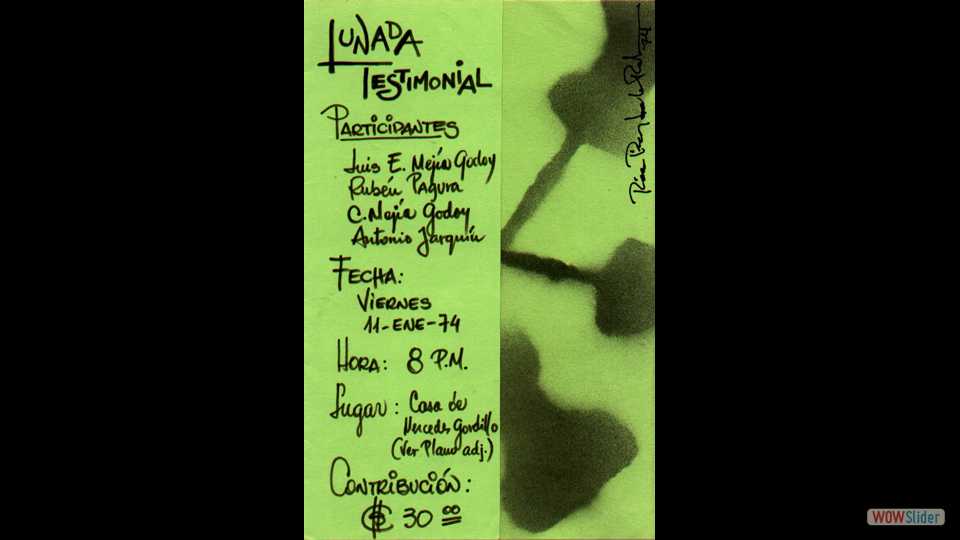 LUNADA
TESTIMONIAL
PARTICIPANTES
Luis E. Mejía Godoy
Rubén Pagura
C. Mejía Godoy
Antonio Jarquín
FECHA:
VIERNES
11-ENE-74
HORA: 8 P.M.
Lugar: Casa de
Mercedes Gordillo
(Ver Plano adj.)
CONTRIBUCIÓN:
C$ 30 00
74
WOWSlider